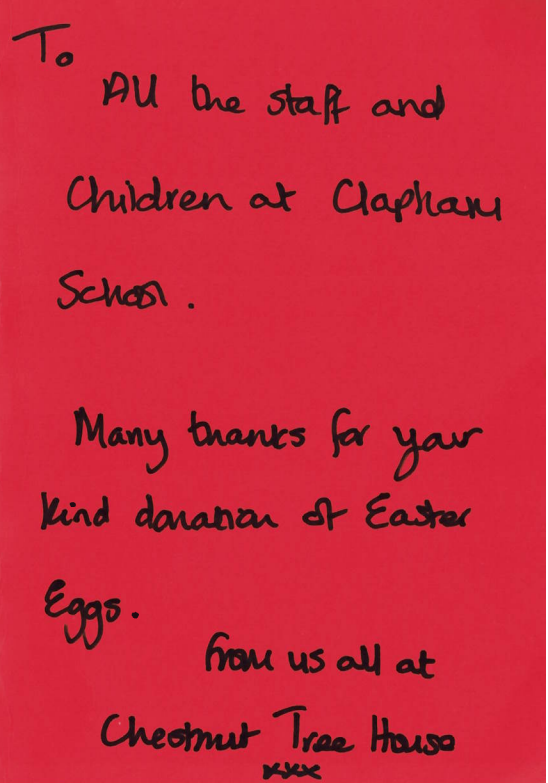 To
All the staff and
Children at Clapham
School.
Many thanks for your
kind donation of Easter
Eggs.
from us all at
Chestnut Tree House
xxx